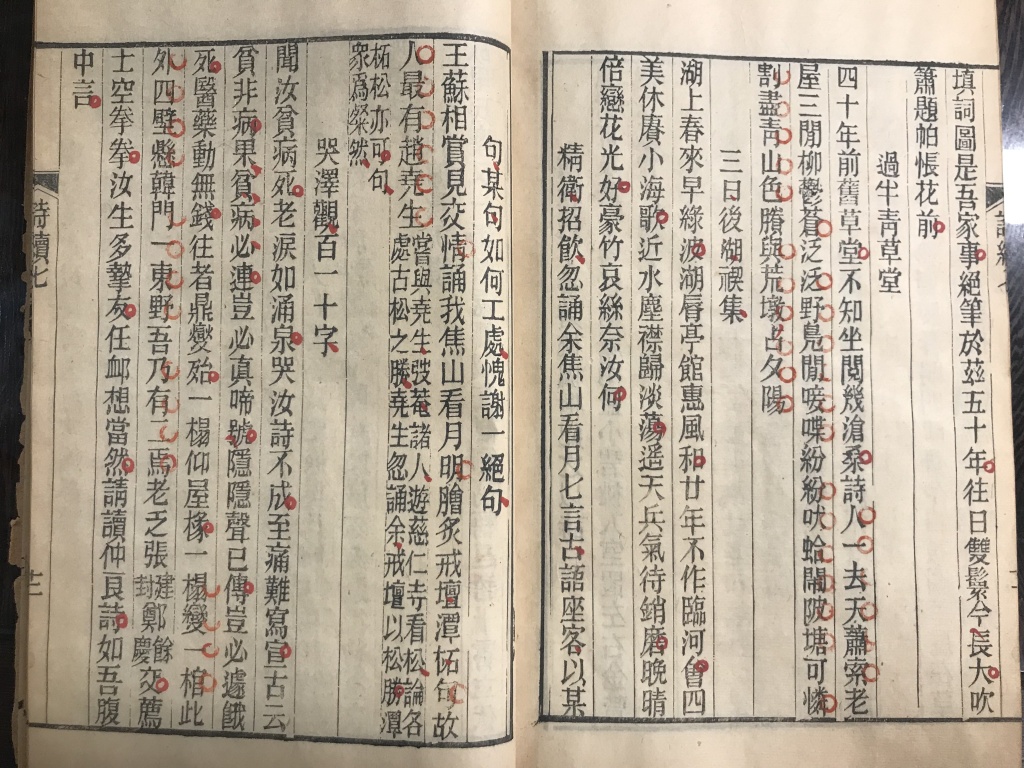 填詞圖是吾家事絕筆於茲五十年往日雙鬟今長大吹
簫題帕悵花前
過半青草堂
四十年前舊草堂不知坐閱幾滄桑詩人一去天蕭索老
屋三間柳鬱蒼泛泛野鳧閒唼喋紛紛吠蛤鬧陂塘可憐
割盡靑山色賸與荒墩占夕陽
三日後湖禊集
湖上春來早綠波湖唇亭館惠風和廿年不作臨河會四
美休賡小海歌近水塵襟歸淡蕩遥天兵氣待銷磨晚晴
倍戀花光好豪竹哀絲奈汝何
精衛招飲忽誦余焦山看月七言古語座客以某
句某句如何工處愧謝一絕句
王蘇相賞見交情誦我焦山看月明膾炙戒壇潭柘句故
人最有趙堯生嘗與堯生弢菴諸人遊慈仁寺看松論各
處古松之勝堯生忽誦余戒壇以松勝潭
柘松亦可句
衆爲粲然
哭澤觀百一十字
聞汝貧病死老淚如涌泉哭汝詩不成至痛難寫宣古云
貧非病果貧病必連豈必真啼號隱隱聲已傳豈必遽餓
死醫藥動無錢往者鼎爕殆一榻仰屋椽一榻爕一棺此
外四壁懸韓門一東野吾乃有二焉老乏張建封鄭餘慶交薦
士空拳拳汝生多摯友任卹想當然請讀仲良詩如吾腹
中言
詩續七